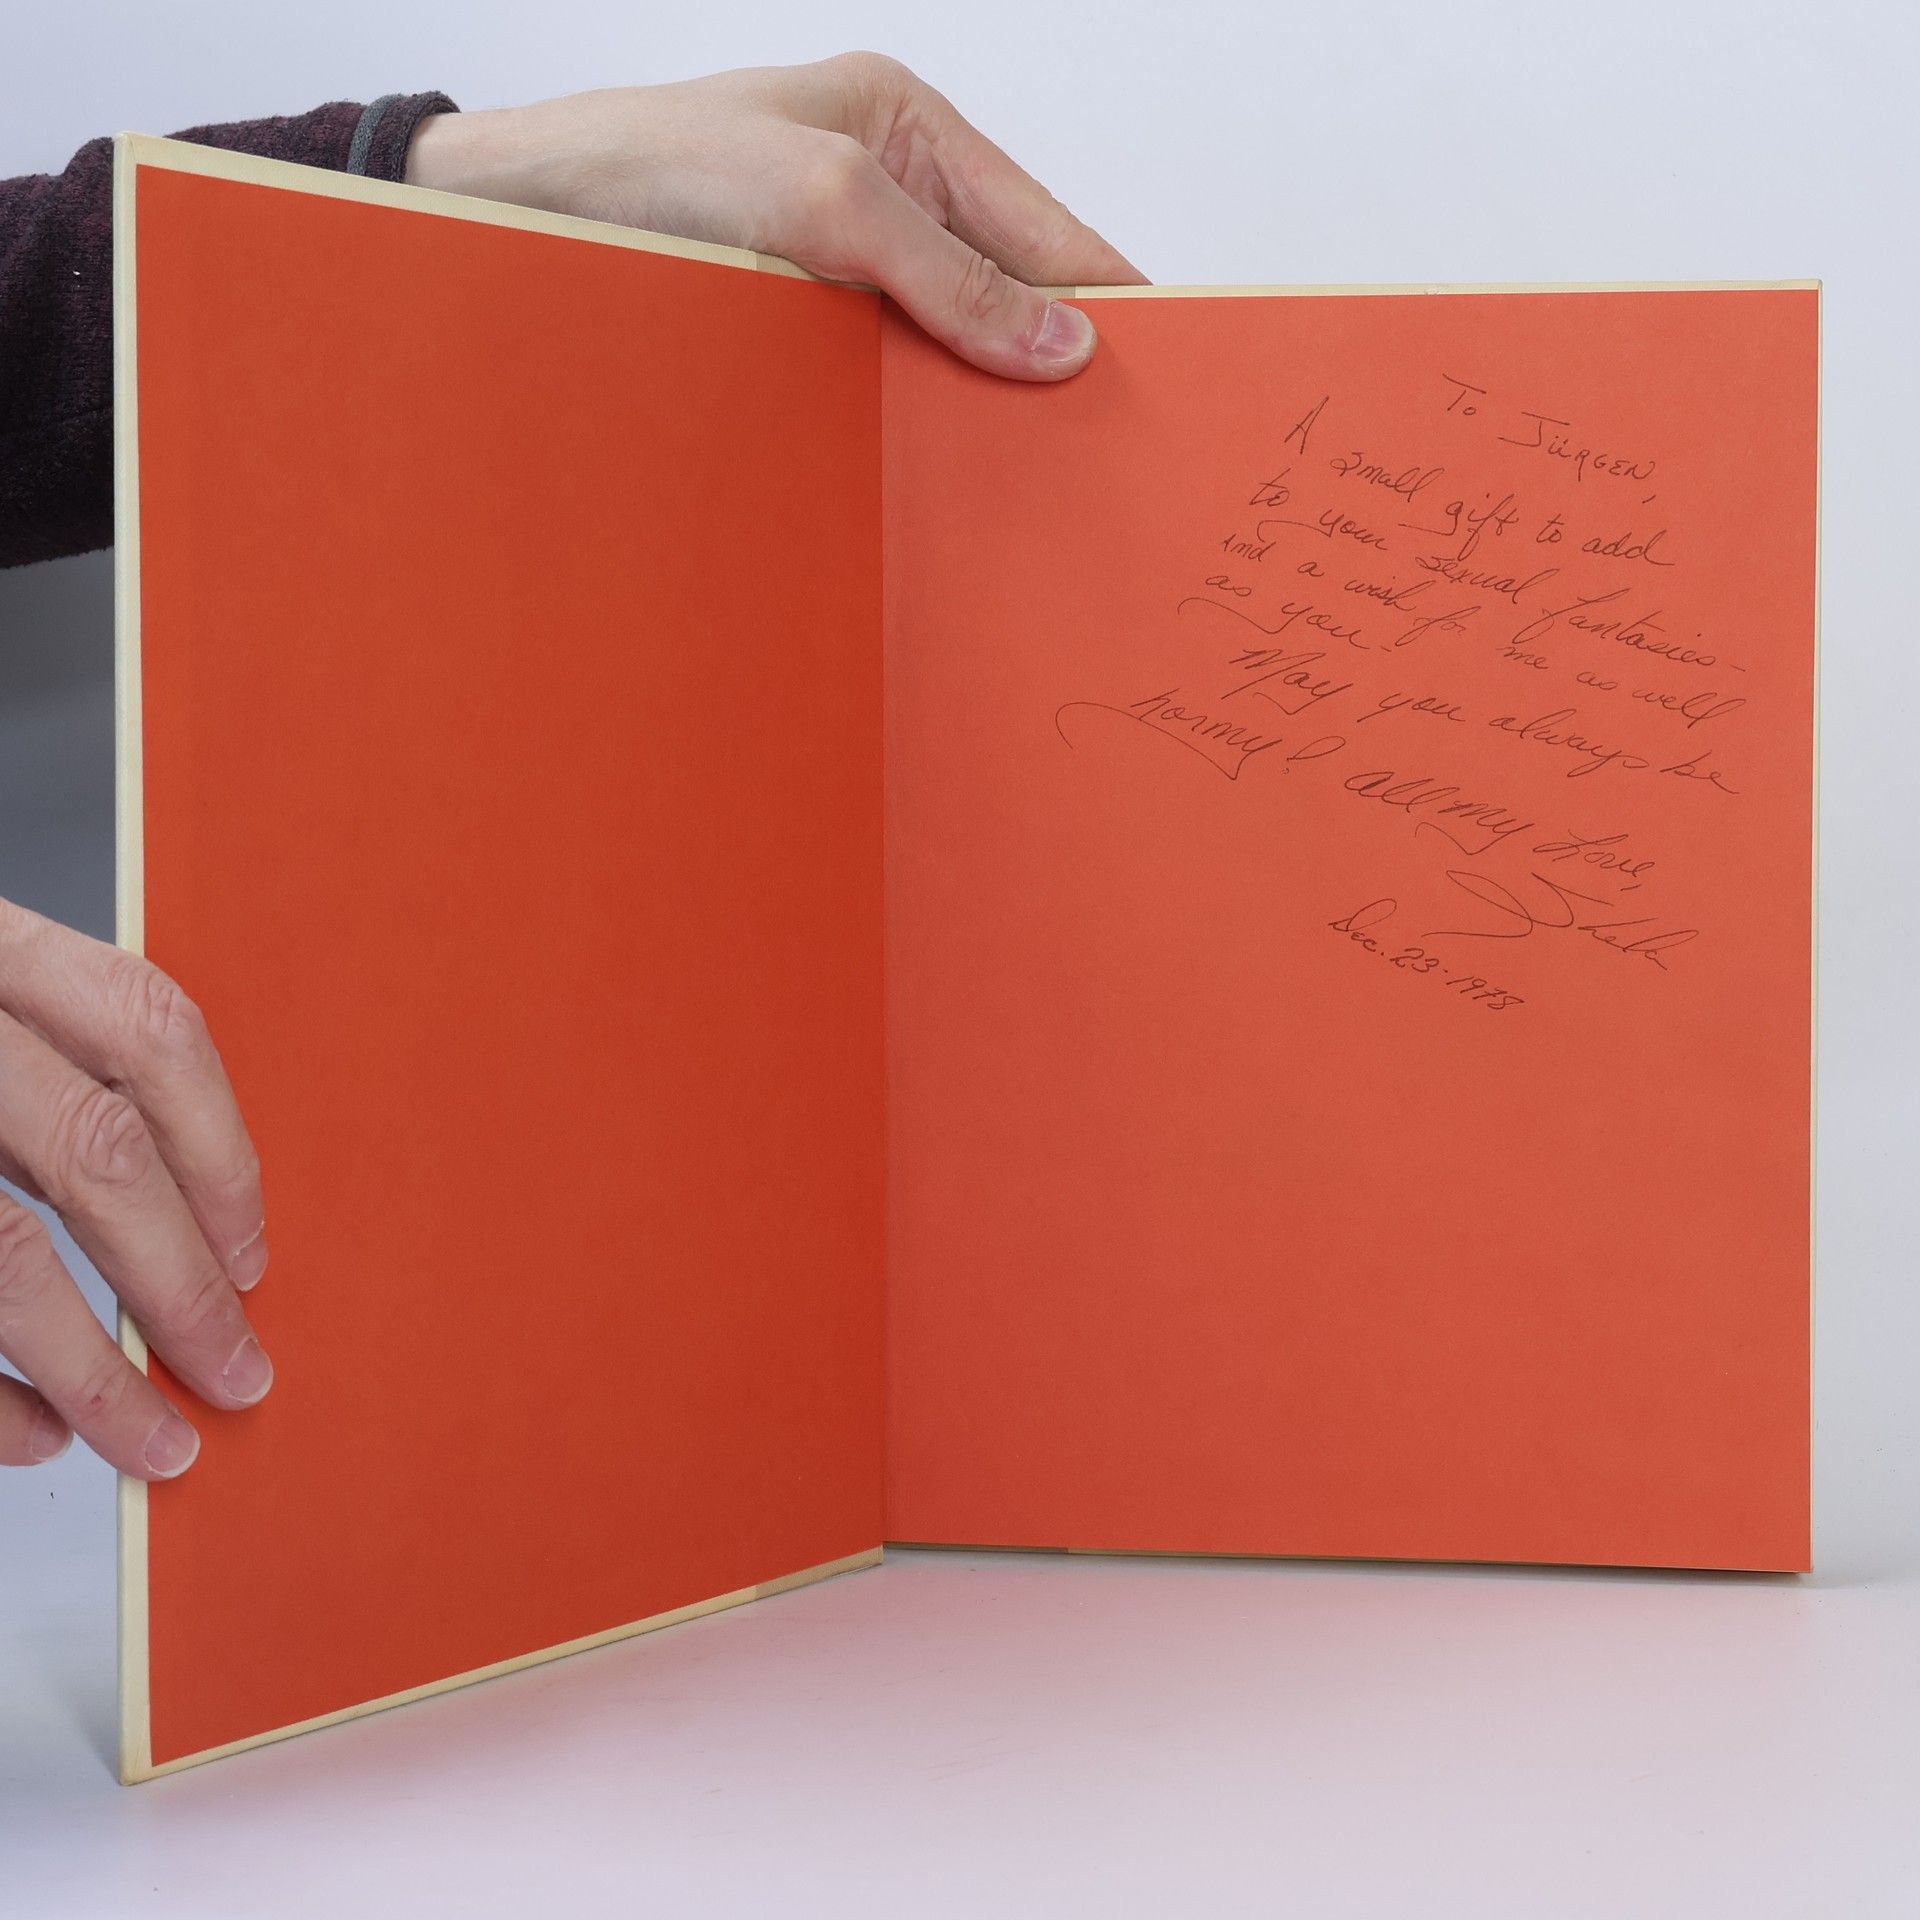 To JÜRGEN,
A small gift to add
to your sexual fantasies -
and a wish for me as well
as you -
May you always be
horny! All my Love,
Sheila
Dec. 23 - 1978